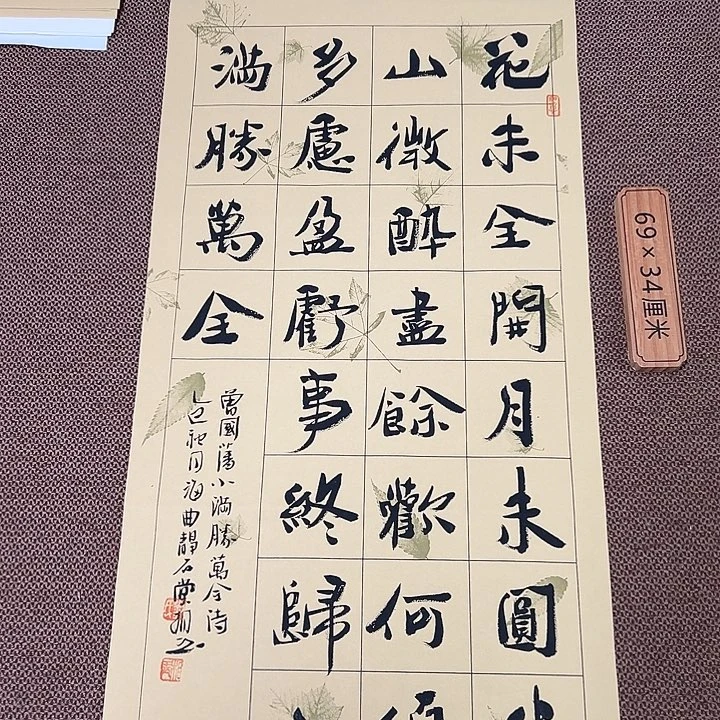 花未全開月未圓
山微醉盡餘歡何
多慮盈虧事終歸
滿勝萬全
曾國藩小滿勝萬全詩
乙巳秋月海曲靜石堂
69×34厘米